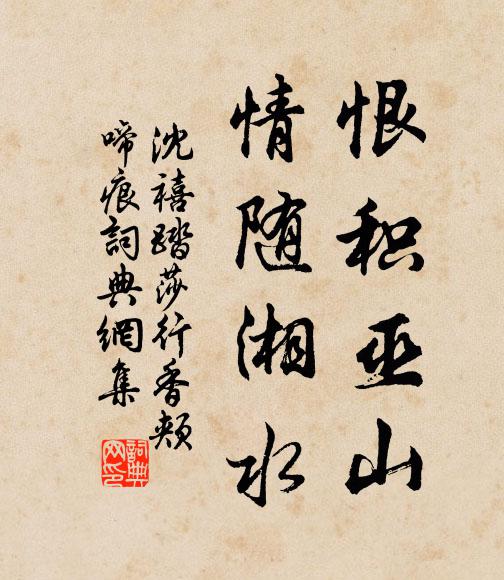 恨积巫山
情随湘水
沈禧踏莎行香颊
啼痕詞典網集
詞典网印